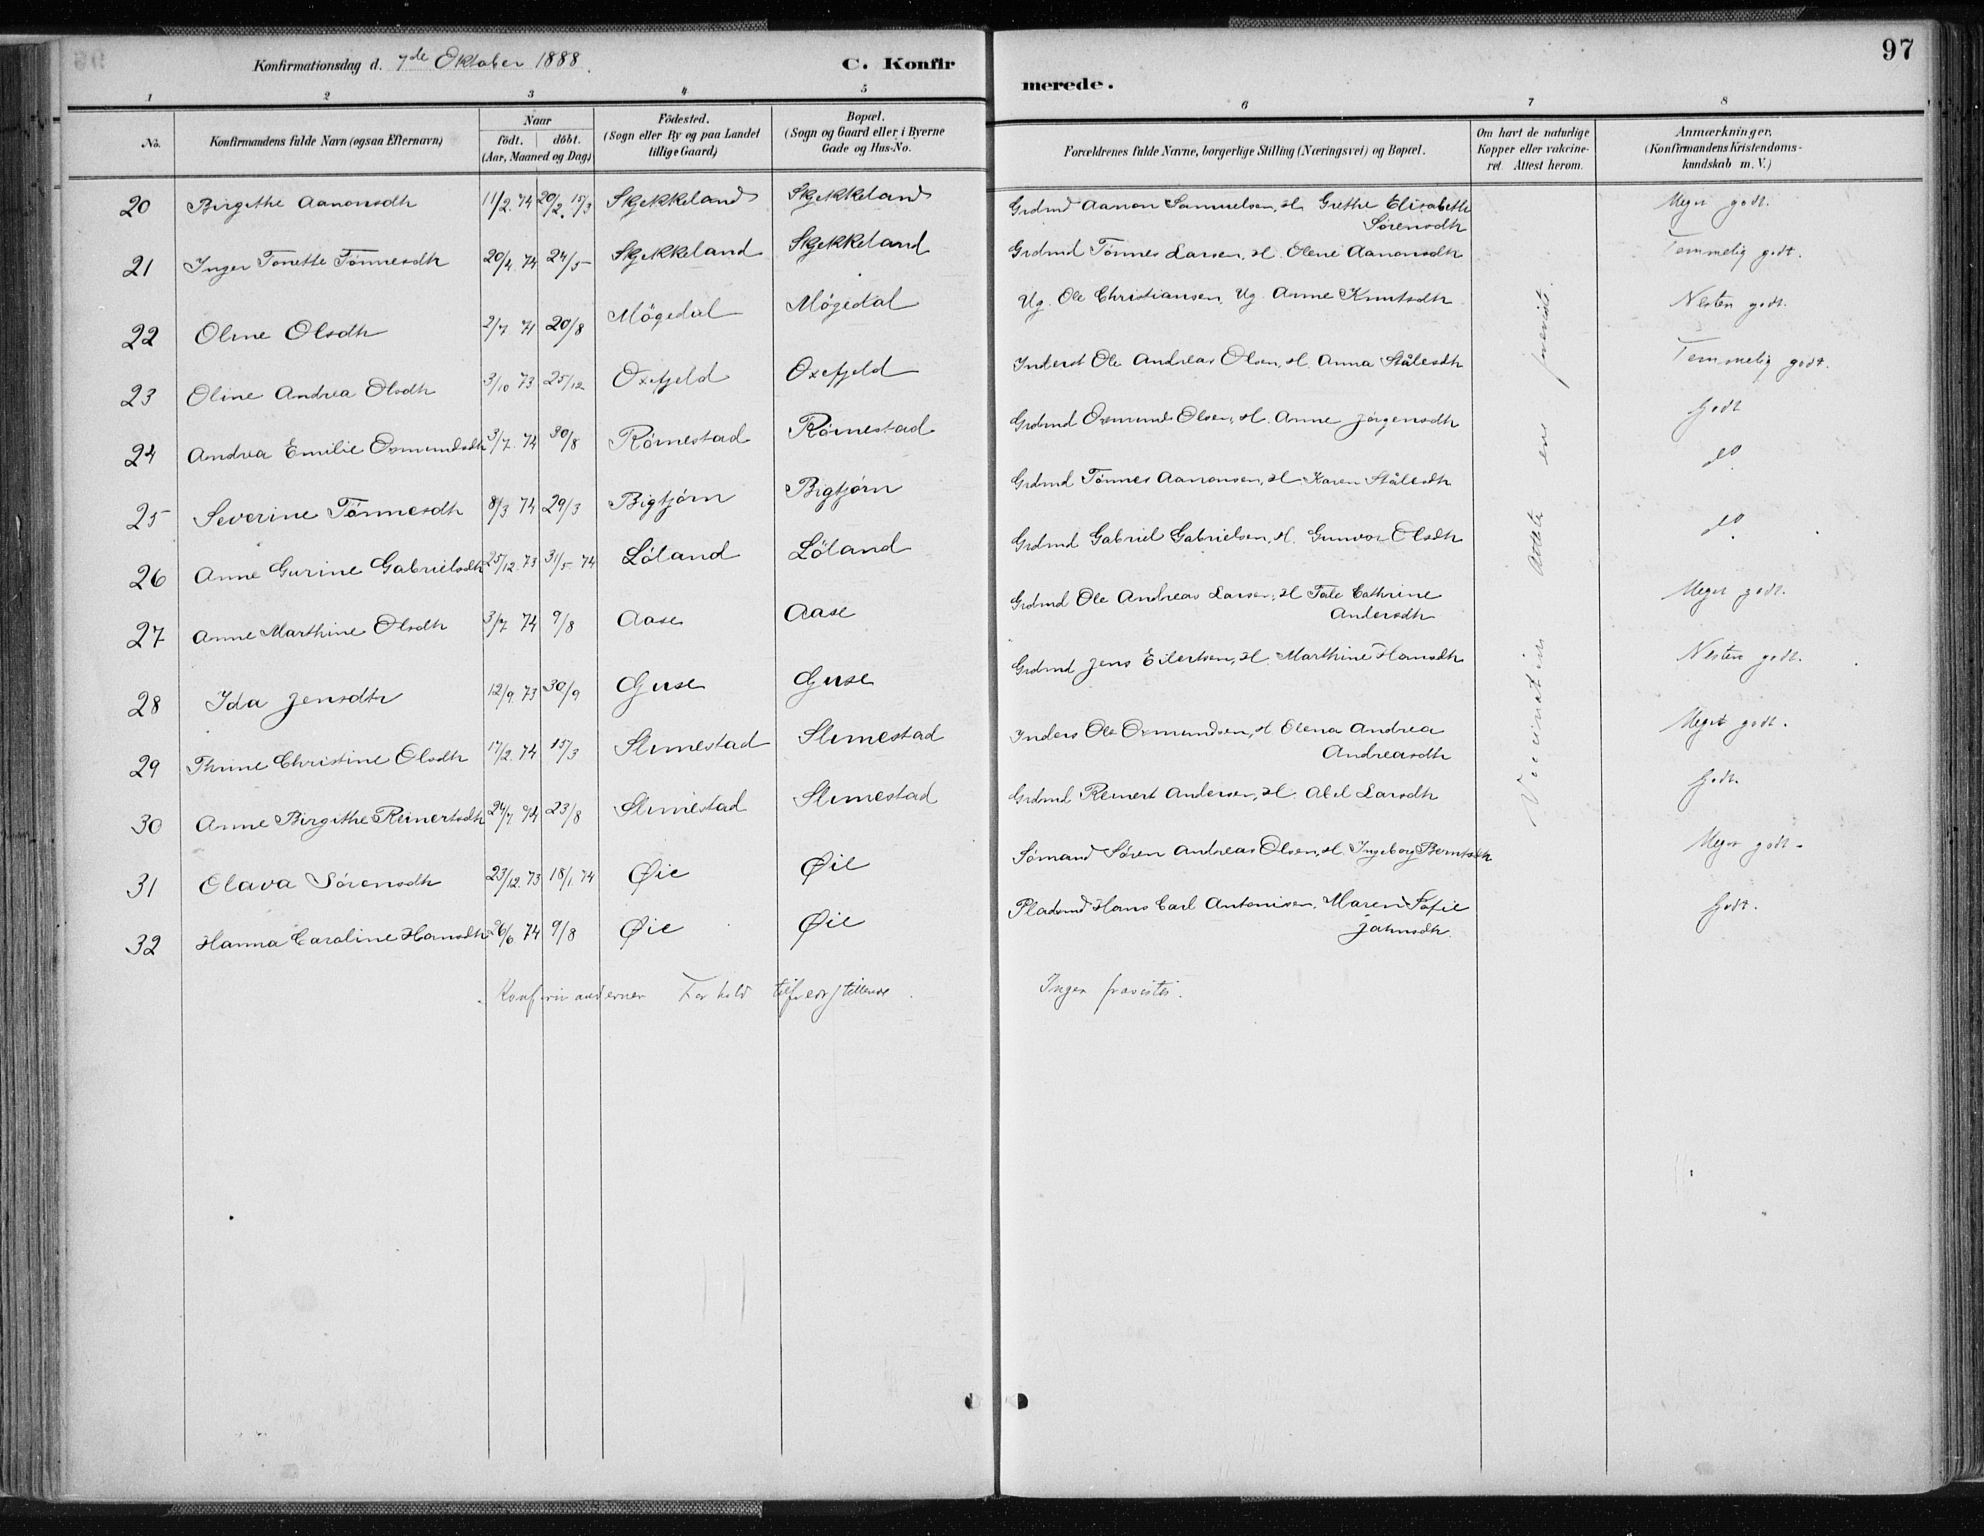 97
Konfirmationsdag d. 7de Oktober 1888.
C. Konfirmerede.
1 2 3 4 5 6 7 8
No. Konfirmandens fulde Navn (ogsaa Efternavn) Naar födt. döbt. (Aar, Maaned og Dag) Födested. (Sogn eller By og paa Landet tillige Gaard) Bopæl. (Sogn og Gaard eller i Byerne Gade og Hus-No. Forældrenes fulde Navne, borgerlige Stilling (Næringsvei) og Bopæl. Om havt de naturlige Kopper eller vakcineret. Attest herom. Anmærkninger. (Konfirmandens Kristendomskundskab m. V.)
20 Birgithe Aanonsdtr 11/2 74 20/2 15/3 Skjekkeland Skjekkeland Grdmd Aanon Samuelsen, H. Grethe Elisabeth Sørensdtr Meget godt.
21 Inger Tonette Tønnesdtr 20/4 74 24/5 Skjekkeland Skjekkeland Grdmd Tønnes Larsen, H. Olene Aanonsdtr Temmelig godt.
22 Oline Olsdtr 2/7 71 20/8 Møgedal Møgedal Ug. Ole Christiansen, Ug. Anne Knutsdtr Nesten godt.
23 Oline Andrea Olsdtr 3/10 73 25/12 Oxefjeld Oxefjeld Inderst Ole Andreas Olsen, H. Anna Stålesdtr Temmelig godt.
24 Andrea Emilie Osmundsdtr 3/7 74 30/8 Rømestad Rømestad Grdmd Osmund Olsen, H. Anne Jørgensdtr Godt
25 Severine Tønnesdtr 8/3 74 29/3 Bigtjørn Bigtjørn Grdmd Tønnes Aanonsen, H. Karen Stålesdtr do
26 Anne Gurine Gabrielsdtr 25/12 73 31/5 74 Løland Løland Grdmd Gabriel Gabrielsen, H. Gunvor Olsdtr do
27 Anne Marthine Olsdtr 3/7 74 9/8 Aase Aase Grdmd Ole Andreas Larsen, H Tale Cathrine Andersdtr Meget godt.
28 Ida Jensdtr 12/9 73 30/9 Gyse Gyse Grdmd Jens Eilertsen, H. Marthine Hansdtr Nesten godt.
29 Thrine Christine Olsdtr 17/2 74 15/3 Slimestad Slimestad Inders Ole Osmundsen, H Elena Andrea Andreasdtr Meget godt.
30 Anne Birgithe Reinertsdtr 24/7 74 23/8 Slimestad Slimestad Grdmd Reinert Andersen, H. Abel Larsdtr Godt.
31 Olava Sørensdtr 23/12 73 18/1 74 Øie Øie Sømand Søren Andreas Olsen, H. Ingeborg Berntsdtr Meget godt.
32 Hanna Caroline Hansdtr 26/6 74 9/8 Øie Øie Pladsmd Hans Carl Antonisen, Maren Sofie Jahnsdtr Godt.
Konfirmandernes Forhold tilfredsstillende. Ingen fraviste.